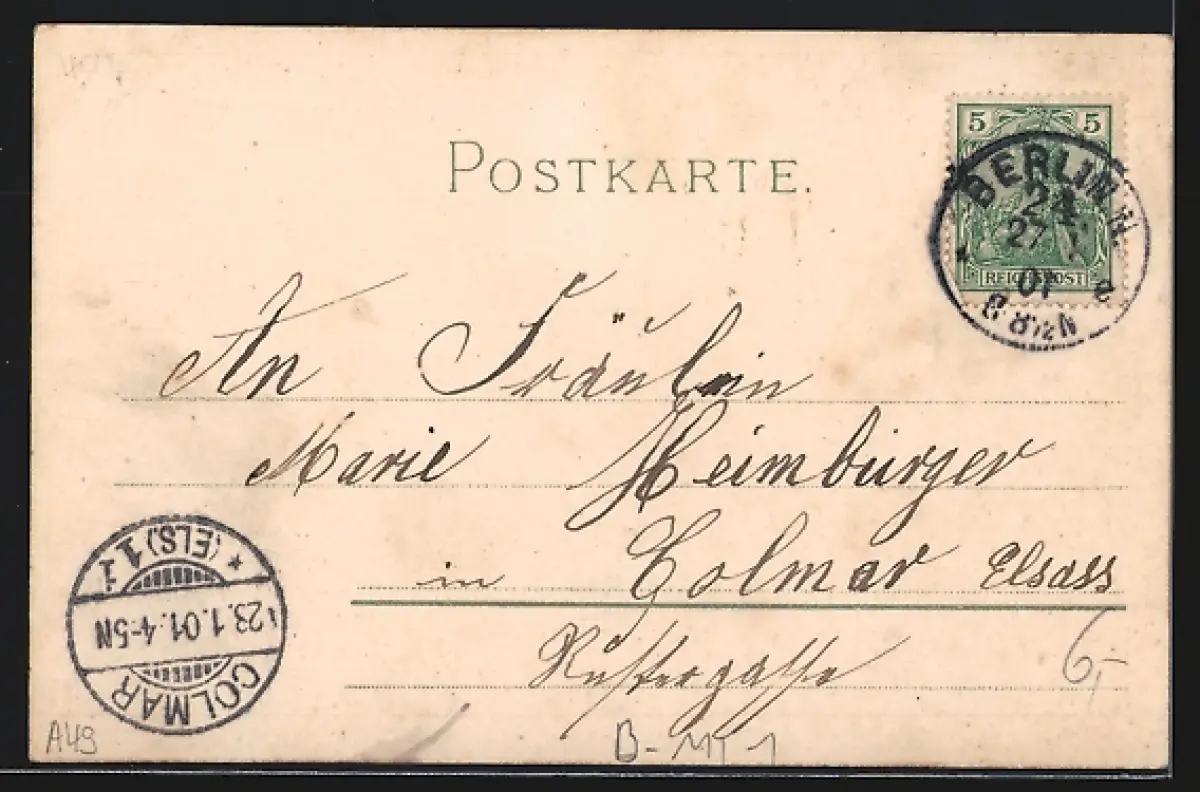 POSTKARTE.
5 5
BERLIN N.
24
27 1
01
6-8½N
e
REICHSPOST
An Fräulein
Marie Heimburger
in Colmar Elsass
6,-
COLMAR
23.1.01.4-5N
* (ELS) 1 i
A49
B-M-1